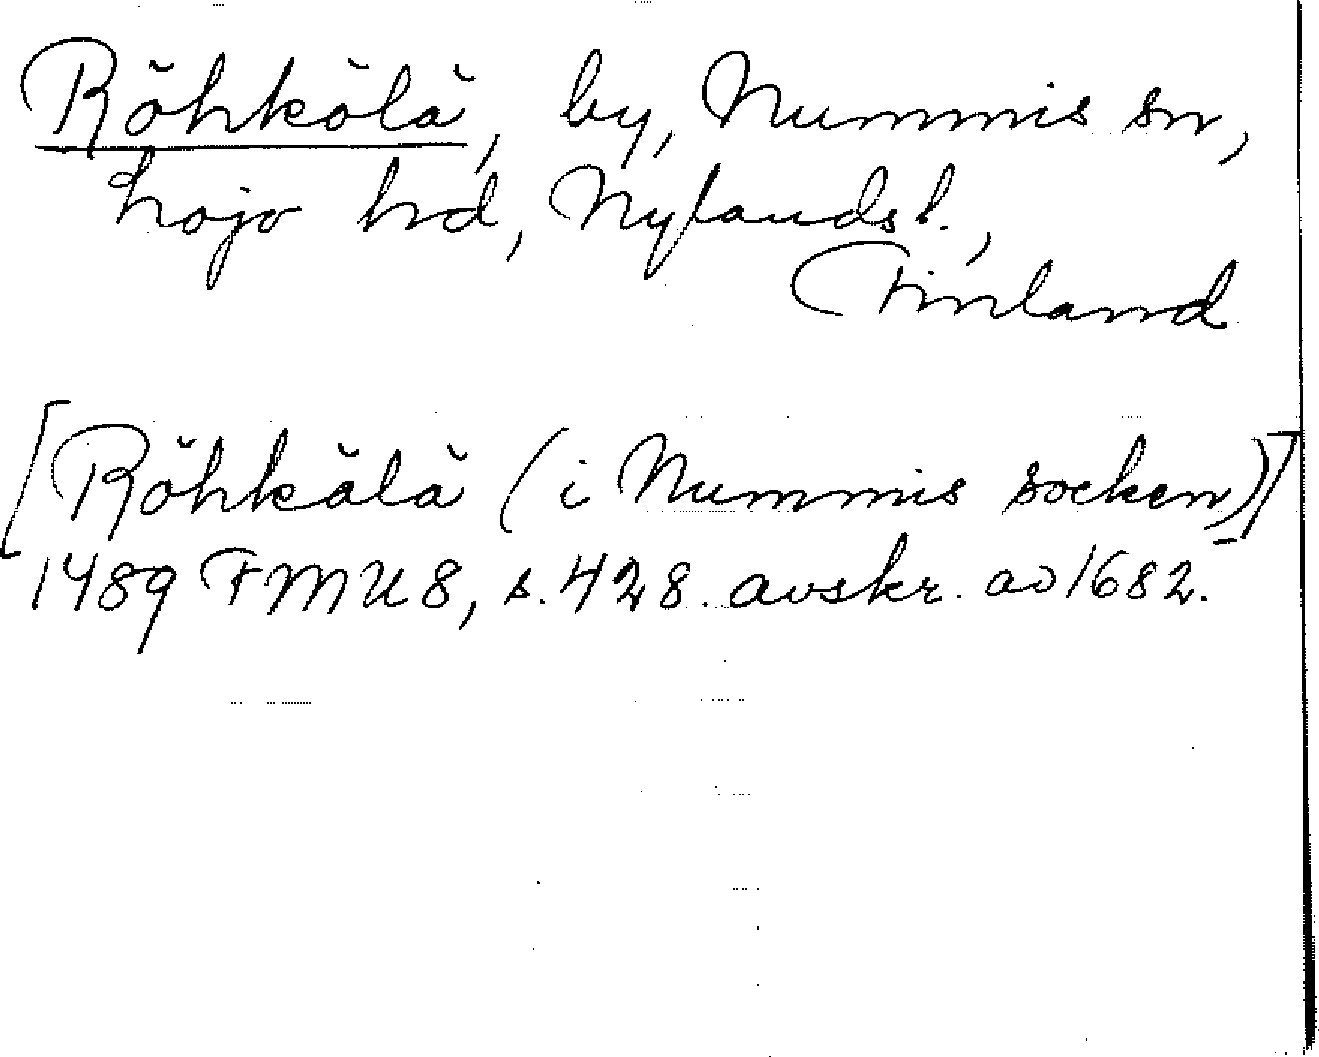 Röhkölä, by, Nummis sn,
Lojo hd, Nylands l.,
Finland
[Röhkälä (i Nummis socken)]
1489 FMU 8, s. 428. avskr. av 1682.